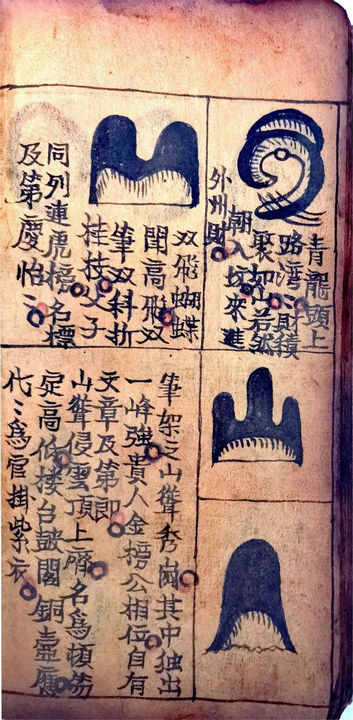 青龍頭上
路湾〻財積
聚如山若然
朝入坟來進
外州財
双飛蝴蝶
高飛双
筆双科折
桂枝父子
同列連虎榜名標
及第慶怡〻
筆架之山聳秀崗其中独出
一峰強貴人金榜公相位自有
文章及第郎
山聳侵雲頂上齊名爲頓笏
定高低楼台鼓閣銅壺應
代〻爲官掛紫衣